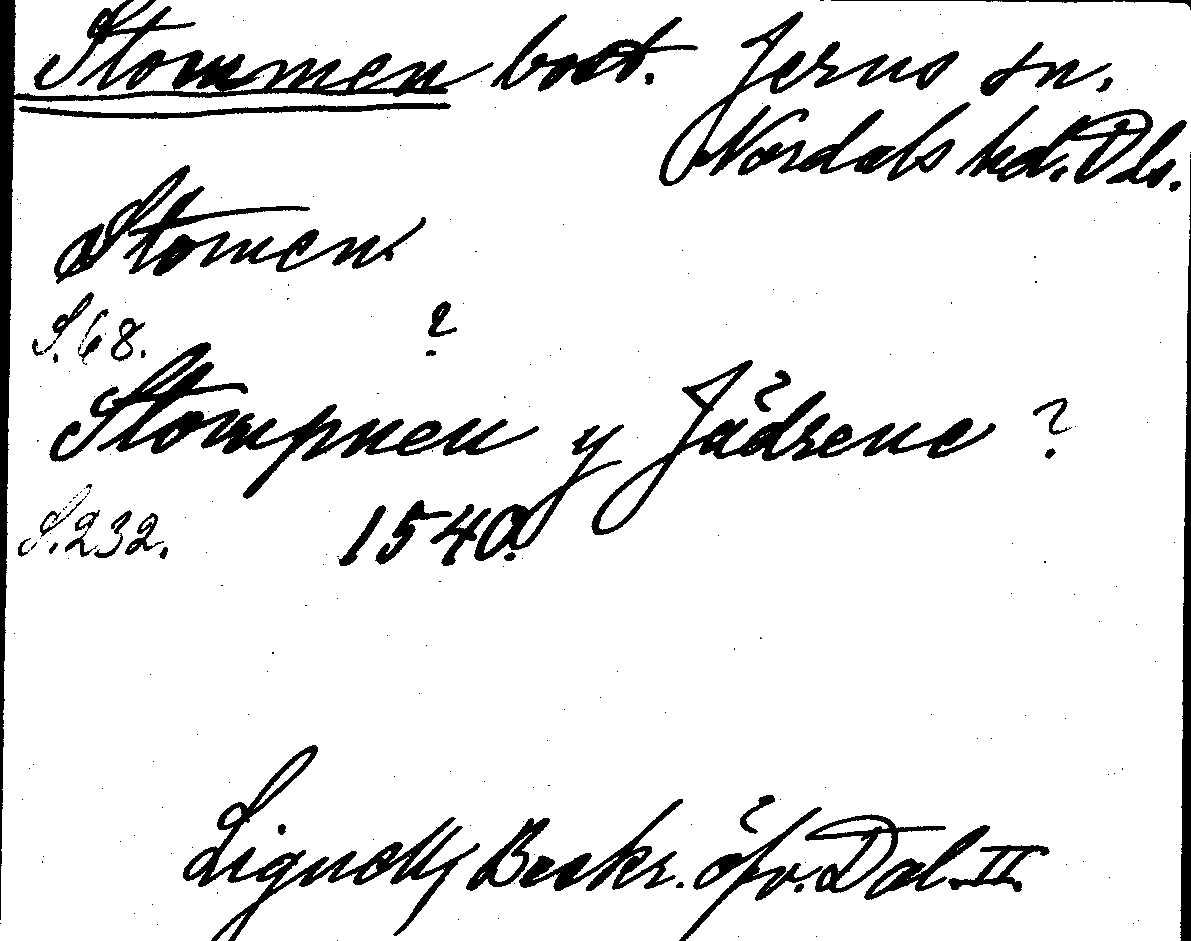 Stommen bost. Jerns sn.
Nordals hd. Dls.
Stomen.
S. 68. ?
Stompnen y Jädrene ?
S. 232. 1540.
Lignells Beskr. öfv. Dal. II.